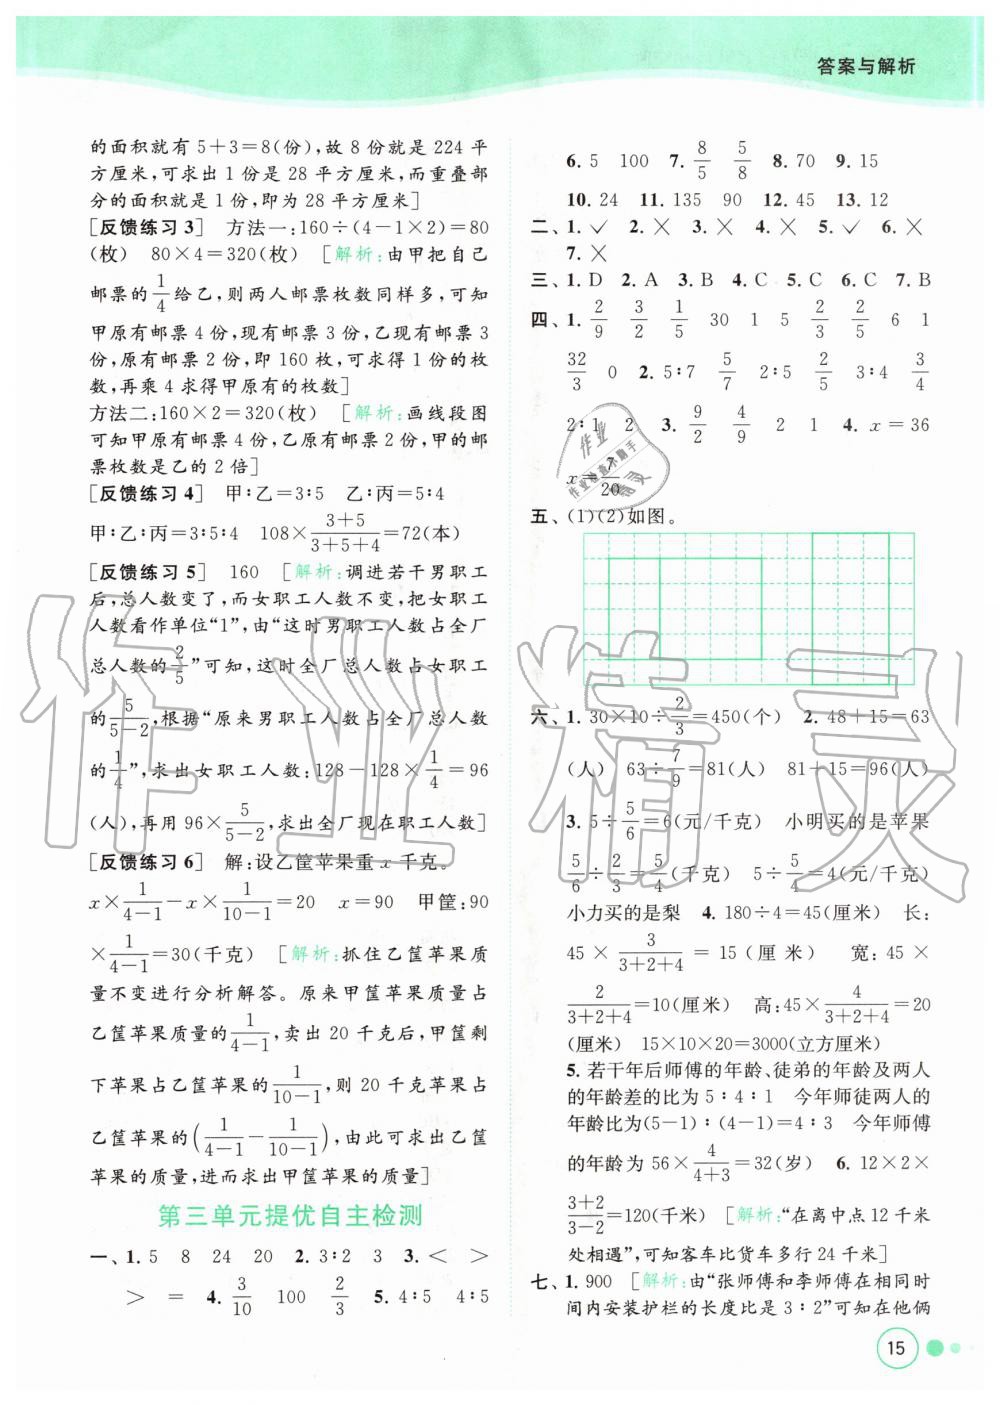 答案与解析
的面积就有 5+3=8(份),故 8 份就是 224 平
方厘米,可求出 1 份是 28 平方厘米,而重叠部
分的面积就是 1 份,即为 28 平方厘米]
[反馈练习 3] 方法一:160÷(4-1×2)=80
(枚) 80×4=320(枚) [解析:由甲把自己
邮票的 1/4 给乙,则两人邮票枚数同样多,可知
甲原有邮票 4 份,现有邮票 3 份,乙现有邮票 3
份,原有邮票 2 份,即 160 枚,可求得 1 份的枚
数,再乘 4 求得甲原有的枚数]
方法二:160×2=320(枚) [解析:画线段图
可知甲原有邮票 4 份,乙原有邮票 2 份,甲的邮
票枚数是乙的 2 倍]
[反馈练习 4] 甲∶乙=3∶5 乙∶丙=5∶4
甲∶乙∶丙=3∶5∶4 108×(3+5)/(3+5+4)=72(本)
[反馈练习 5] 160 [解析:调进若干男职工
后,总人数变了,而女职工人数不变,把女职工
人数看作单位“1”,由“这时男职工人数占全厂
总人数的 2/5”可知,这时全厂总人数占女职工
的 5/(5-2),根据“原来男职工人数占全厂总人数
的 1/4”,求出女职工人数:128-128×1/4=96
(人),再用 96×5/(5-2),求出全厂现在职工人数]
[反馈练习 6] 解:设乙筐苹果重 x 千克。
x×1/(4-1)-x×1/(10-1)=20 x=90 甲筐:90
×1/(4-1)=30(千克) [解析:抓住乙筐苹果质
量不变进行分析解答。原来甲筐苹果质量占
乙筐苹果质量的 1/(4-1),卖出 20 千克后,甲筐剩
下苹果占乙筐苹果的 1/(10-1),则 20 千克苹果占
乙筐苹果的 (1/(4-1)-1/(10-1)),由此可求出乙筐
苹果的质量,进而求出甲筐苹果的质量]
第三单元提优自主检测
一、1. 5 8 24 20 2. 3∶2 3 3. < >
> = 4. 3/10 100 2/3 5. 4∶5 4∶5
6. 5 100 7. 8/5 5/8 8. 70 9. 15
10. 24 11. 135 90 12. 45 13. 12
二、1. ✓ 2. ✕ 3. ✕ 4. ✕ 5. ✓ 6. ✕
7. ✕
三、1. D 2. A 3. B 4. C 5. C 6. C 7. B
四、1. 2/9 3/2 1/5 30 1 5 2/3 2/5 6 1
32/3 0 2. 5∶7 5/7 2∶5 2/5 3∶4 3/4
2∶1 2 3. 9/2 4/9 2 1 4. x=36
x=7/20
五、(1)(2)如图。
六、1. 30×10÷2/3=450(个) 2. 48+15=63
(人) 63÷7/9=81(人) 81+15=96(人)
3. 5÷5/6=6(元/千克) 小明买的是苹果
5/6÷2/3=5/4(千克) 5÷5/4=4(元/千克)
小力买的是梨 4. 180÷4=45(厘米) 长:
45×3/(3+2+4)=15(厘米) 宽:45×
2/(3+2+4)=10(厘米) 高:45×4/(3+2+4)=20
(厘米) 15×10×20=3000(立方厘米)
5. 若干年后师傅的年龄、徒弟的年龄及两人
的年龄差的比为 5∶4∶1 今年师徒两人的
年龄比为(5-1)∶(4-1)=4∶3 今年师傅
的年龄为 56×4/(4+3)=32(岁) 6. 12×2×
(3+2)/(3-2)=120(千米) [解析:“在离中点 12 千米
处相遇”,可知客车比货车多行 24 千米]
七、1. 900 [解析:由“张师傅和李师傅在相同时
间内安装护栏的长度比是 3∶2”可知在他俩
15
作业精灵